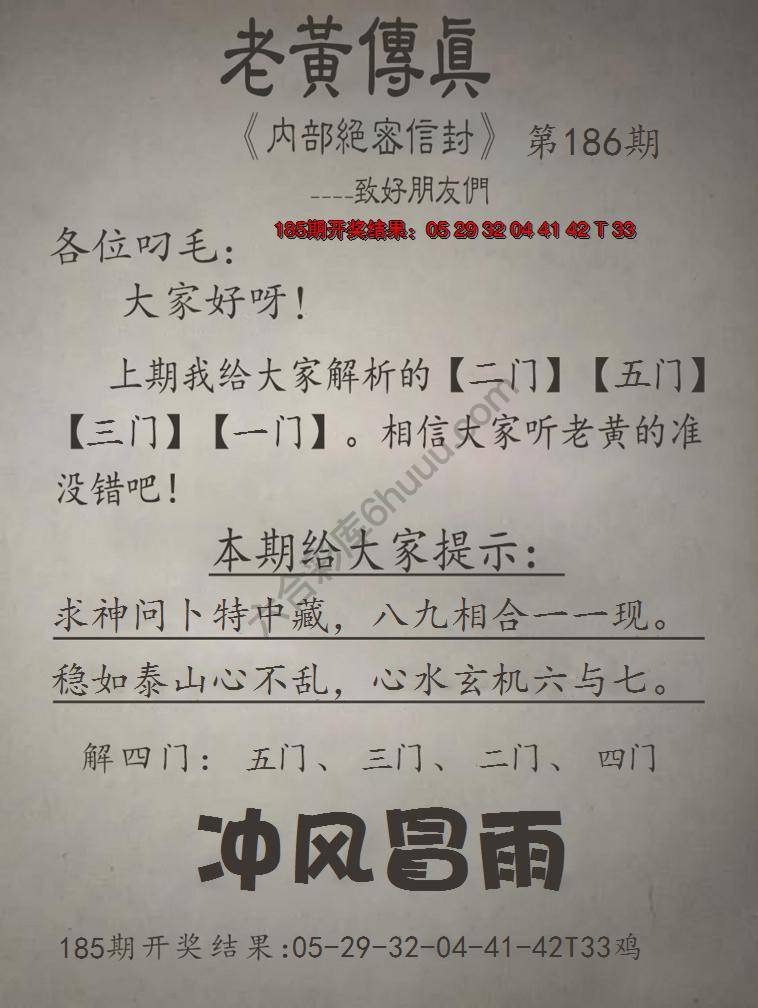 老黃傳眞
《内部絕密信封》 第186期
----致好朋友們
185期开奖结果：05 29 32 04 41 42 T 33
各位叼毛：
大家好呀！
上期我给大家解析的【二门】【五门】
【三门】【一门】。相信大家听老黄的准
没错吧！
本期给大家提示：
求神问卜特中藏，八九相合一一现。
稳如泰山心不乱，心水玄机六与七。
解四门： 五门、 三门、 二门、 四门
冲风冒雨
185期开奖结果:05-29-32-04-41-42T33鸡
六合彩库6huuu.com